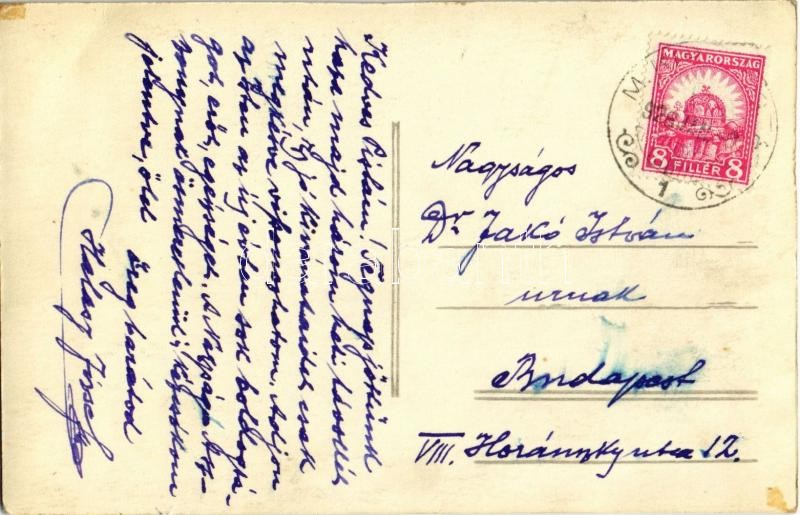 Kedves Pistám! Tegnap jöttünk
haza majd három heti távollét
után, így jó kívánságaidat csak
megkésve viszonozhatom. Adjon
az Isten az új évben sok boldogsá-
got, erőt, egészséget. A Nagysága Asz-
szonynak őnmagadnál; kézcsókom
jelentve, ölel
öreg barátod
Halász József
MAGYARORSZÁG
8 FILLÉR 8
1
Nagyságos
Dr Jakó István
urnak
Budapest
VIII. Horánszky utca 12.